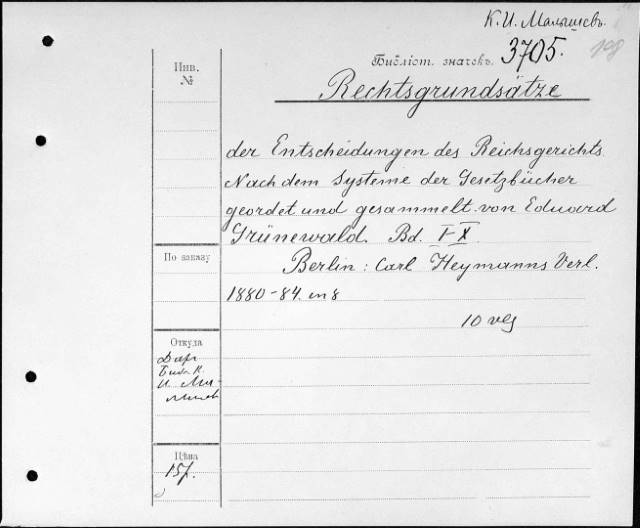 К. И. Малышевъ.
Библіот. значекъ. 3705. 198
Инв.
№
Rechtsgrundsätze
der Entscheidungen des Reichsgerichts.
Nach dem Systeme der Gesetzbücher
geordet und gesammelt von Eduard
Grünewald. Bd. I-X.
По заказу
Berlin: Carl Heymanns Verl.
1880-84. in 8
10 vls
Откуда
Даръ
Библ. К.
И. Ма-
лышев
Цѣна
15р.